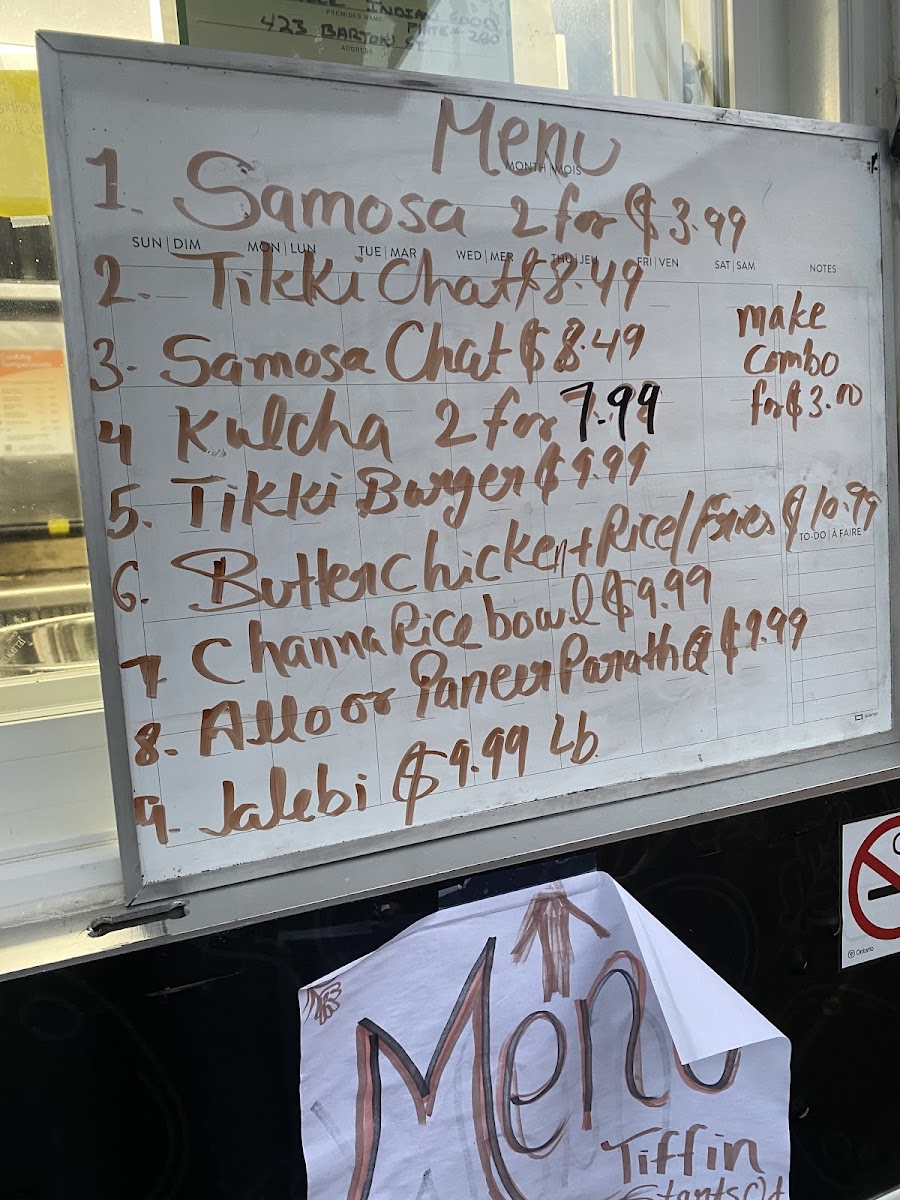 INDIAN FOOD
PREMISES NAME
423 BARTON ST
ADDRESS
Menu
MONTH | MOIS
1. Samosa 2 for $3.99
SUN | DIM MON | LUN TUE | MAR WED | MER THU | JEU FRI | VEN SAT | SAM NOTES
2. Tikki Chat $8.49
3. Samosa Chat $8.49
4 Kulcha 2 for 7.99
5. Tikki Burger $9.99
6. Butter Chicken + Rice/Fries $10.99
7 Channa Rice bowl $9.99
8. Allo or Paneer Paratha $9.99
9. Jalebi $9.99 Lb.
make
combo
for $3.00
TO-DO | À FAIRE
Ontario
Menu
Tiffin